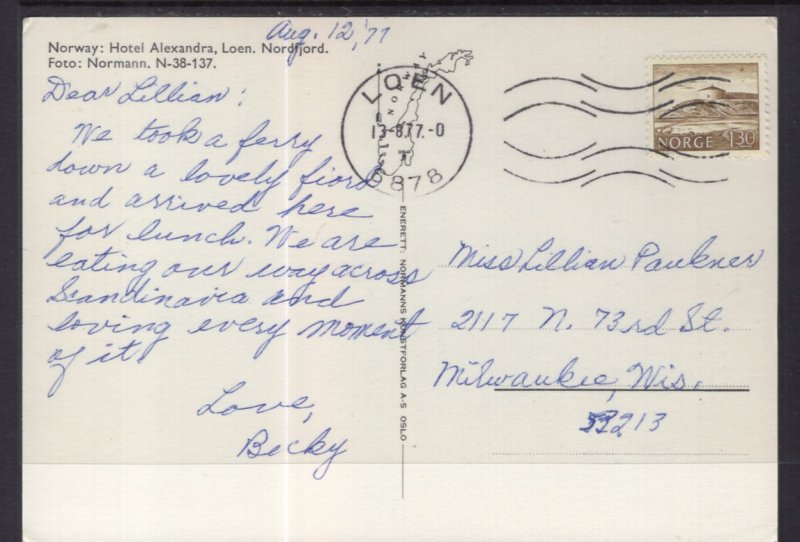 Aug. 12, '77
Norway: Hotel Alexandra, Loen. Nordfjord.
Foto: Normann. N-38-137.
Dear Lillian:
We took a ferry
down a lovely fiord
and arrived here
for lunch. We are
eating our way across
Scandinavia and
loving every moment
of it.
Love,
Becky
LOEN
NORWAY
13-8.77.-0
6878
NORGE 130
ENERETT: NORMANNS KUNSTFORLAG A-S OSLO
Miss Lillian Paukner
2117 N. 73rd St.
Milwaukee, Wis.
53213